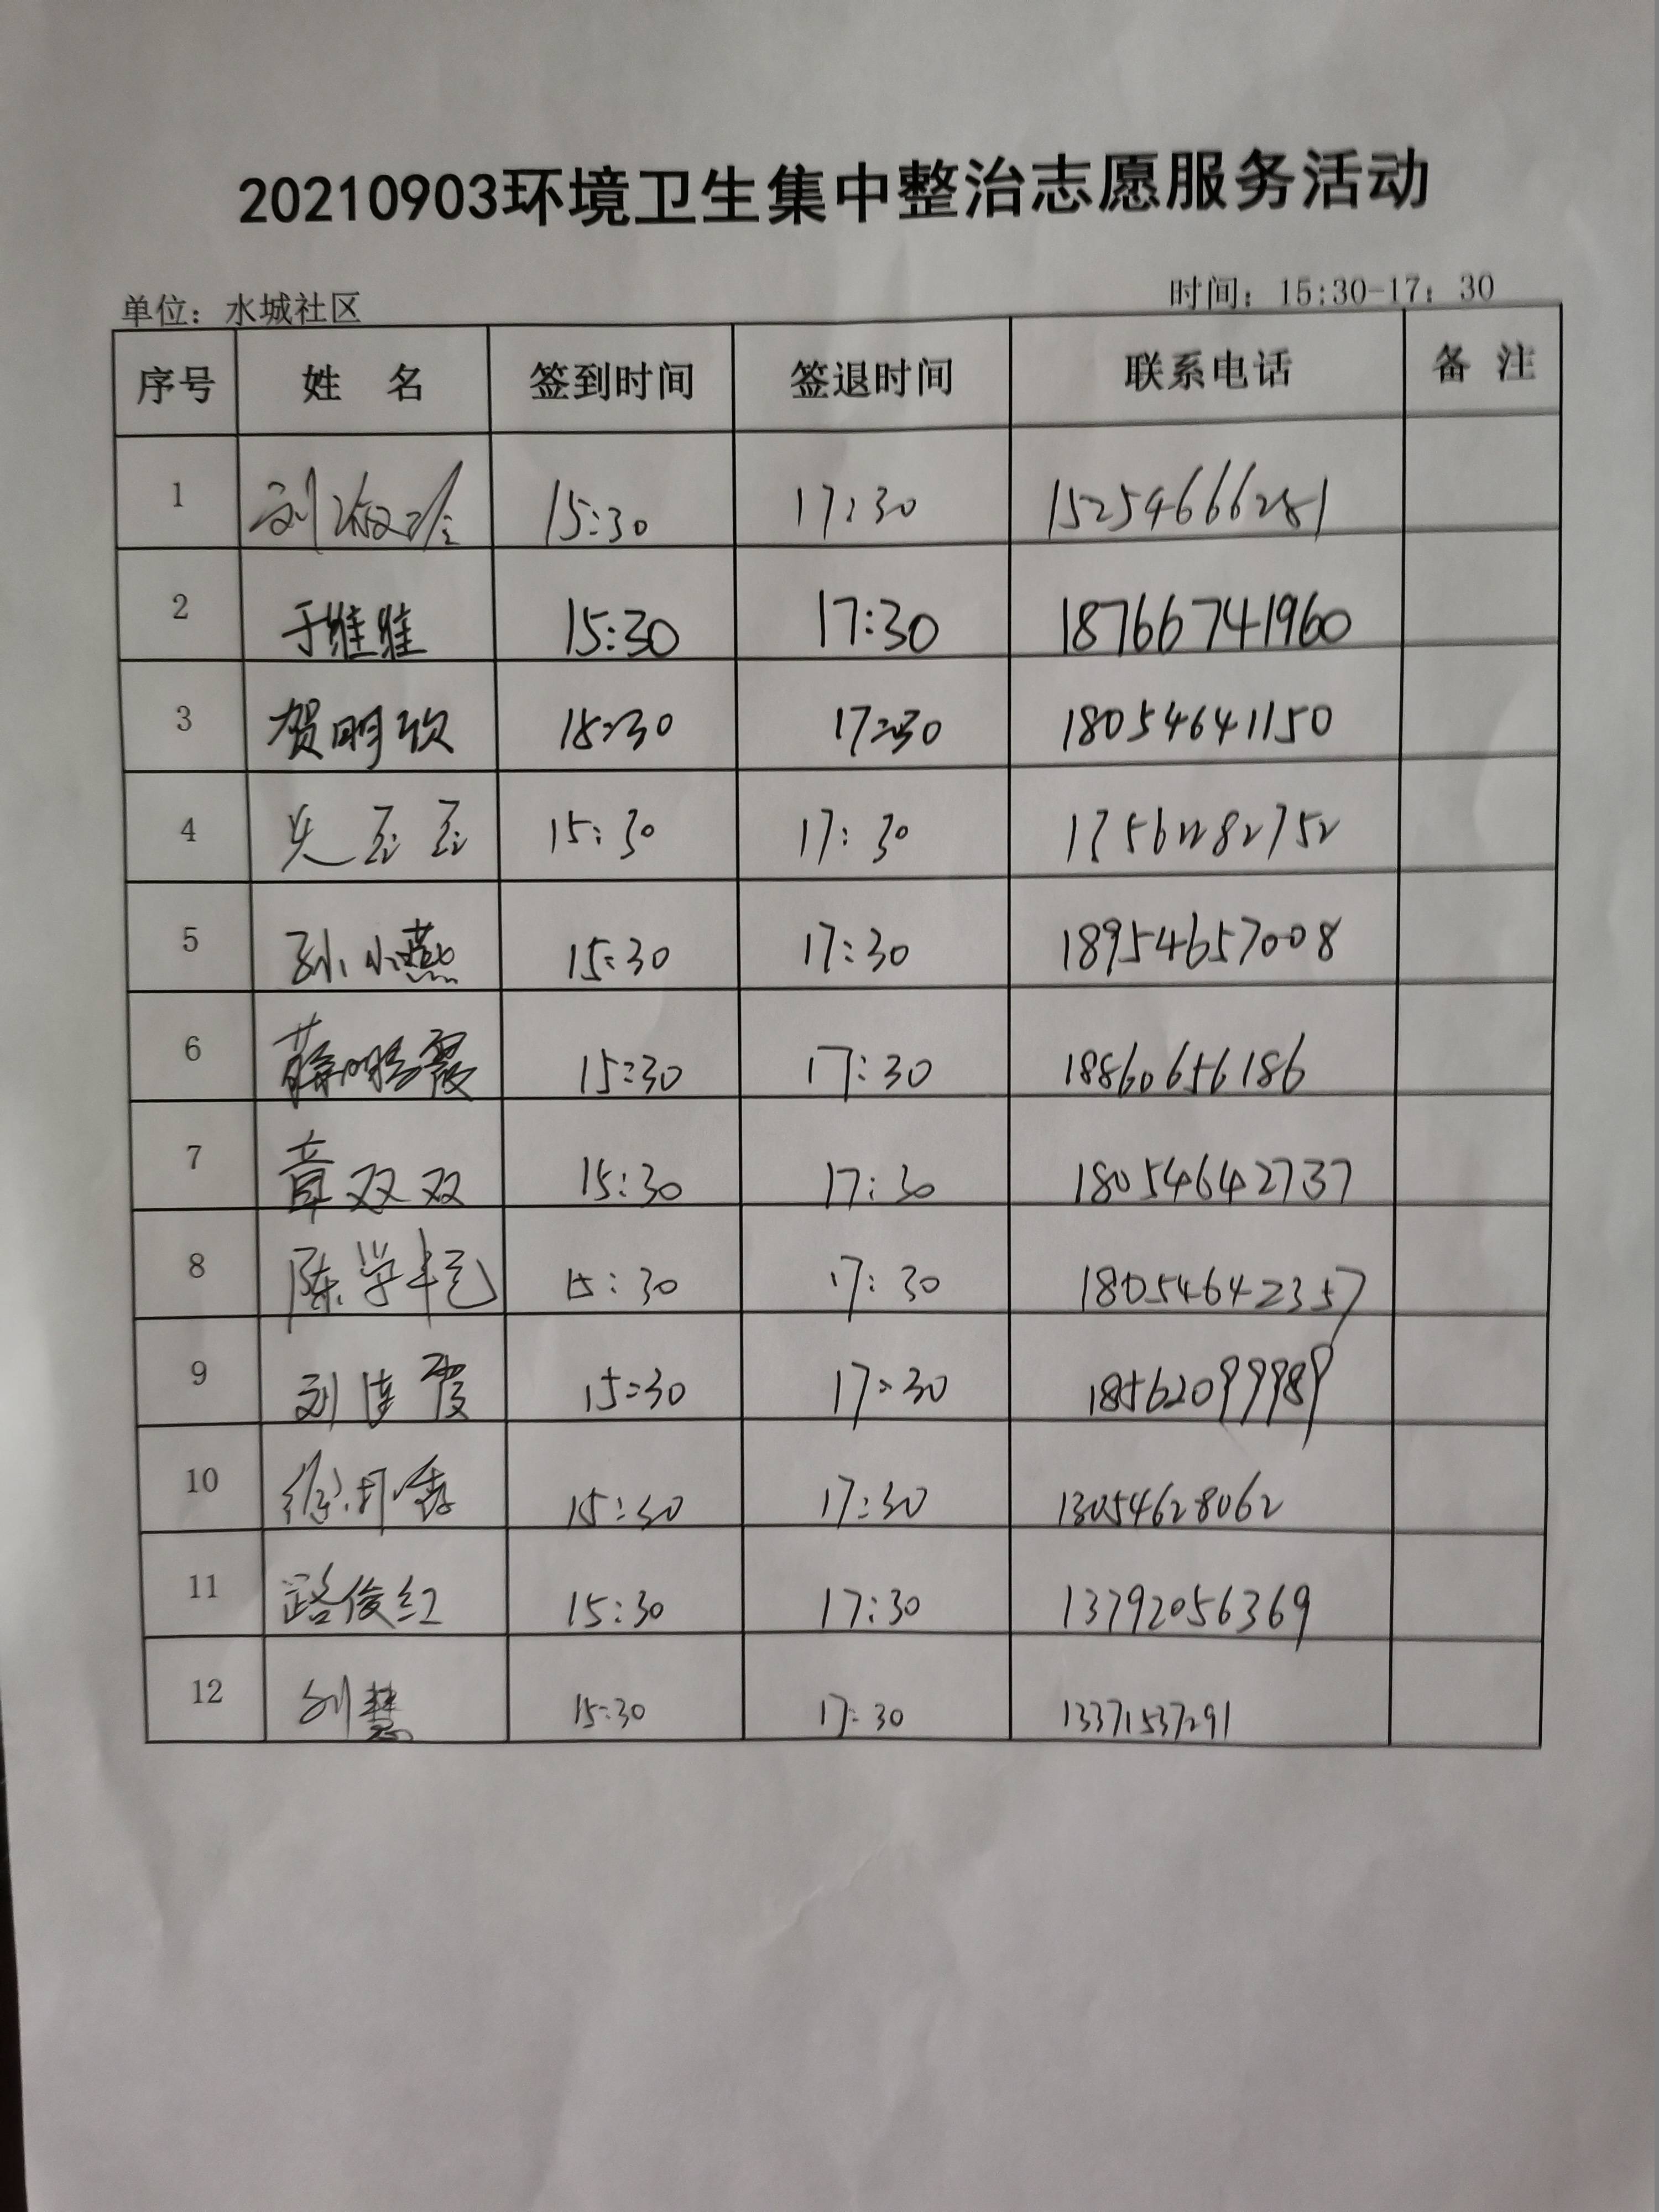 20210903环境卫生集中整治志愿服务活动
单位：水城社区 时间：15:30-17：30
序号 姓 名 签到时间 签退时间 联系电话 备 注
1 刘 15:30 17:30 15254666281
2 于维维 15:30 17:30 18766741960
3 贺明欣 15:30 17:30 18054641150
4 15:30 17:30
5 孙小燕 15:30 17:30 18954657008
6 薛鹏霞 15:30 17:30 18860656186
7 章双双 15:30 17:30 18054642737
8 陈学艳 15:30 17:30 18054642357
9 刘连霞 15:30 17:30 18562099989
10 徐 15:30 17:30 13054628062
11 路俊红 15:30 17:30 13792056369
12 刘慧 15:30 17:30 13371537291